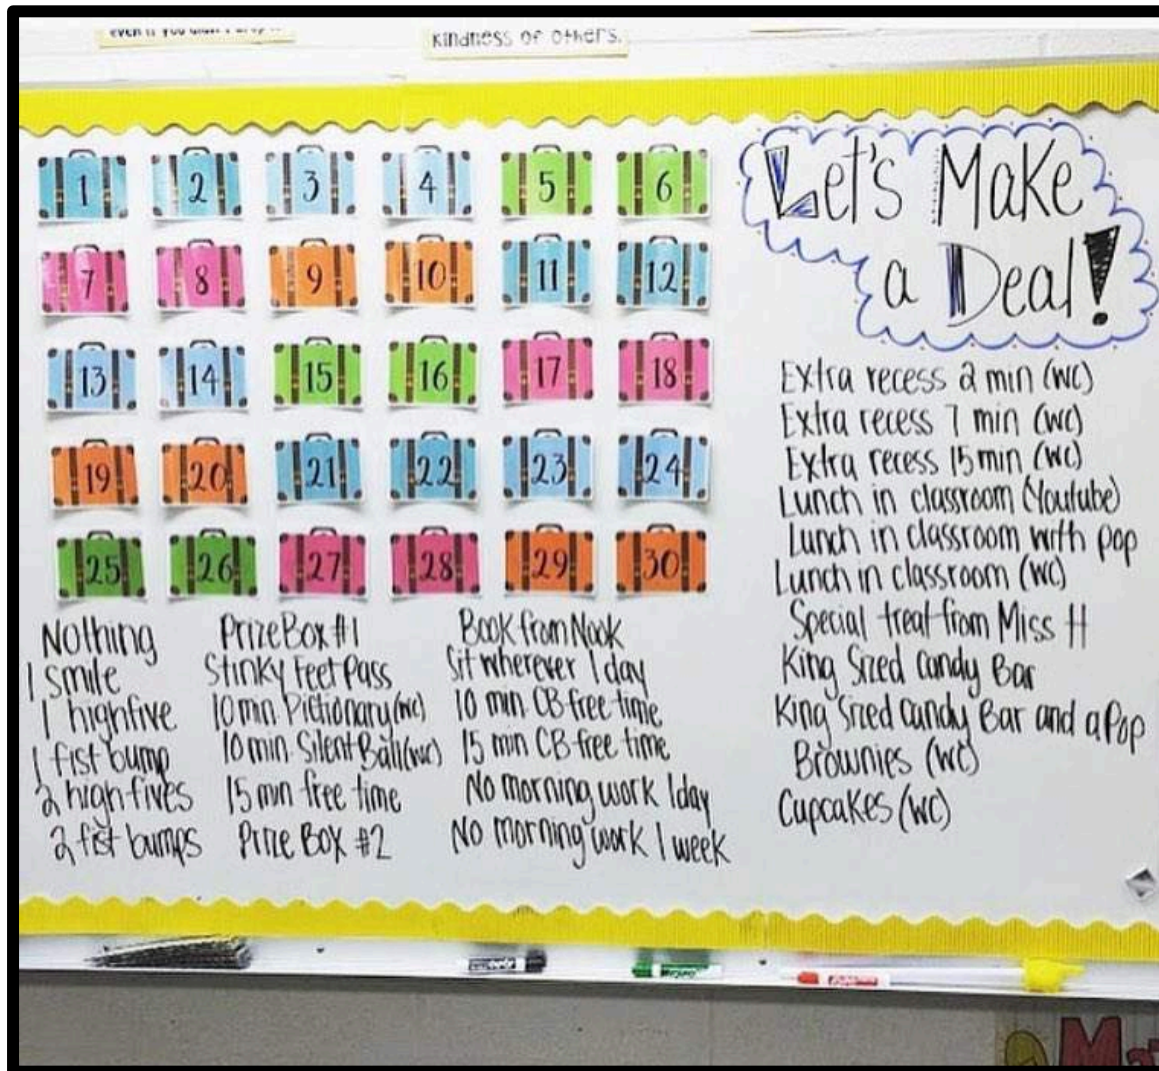 kindness of others.
Let's Make
a Deal!
1 2 3 4 5 6
7 8 9 10 11 12
13 14 15 16 17 18
19 20 21 22 23 24
25 26 27 28 29 30
Nothing
1 smile
1 highfive
1 fist bump
2 high fives
2 fist bumps
Prize Box #1
Stinky Feet Pass
10 min Pictionary (wc)
10 min Silent Ball (wc)
15 min free time
Prize Box #2
Book from Nook
Sit wherever 1 day
10 min CB free time
15 min CB free time
No morning work 1 day
No morning work 1 week
Extra recess 2 min (wc)
Extra recess 7 min (wc)
Extra recess 15 min (wc)
Lunch in classroom (Youtube)
Lunch in classroom with pop
Lunch in classroom (wc)
Special treat from Miss H
King Sized Candy Bar
King Sized Candy Bar and a Pop
Brownies (wc)
Cupcakes (wc)